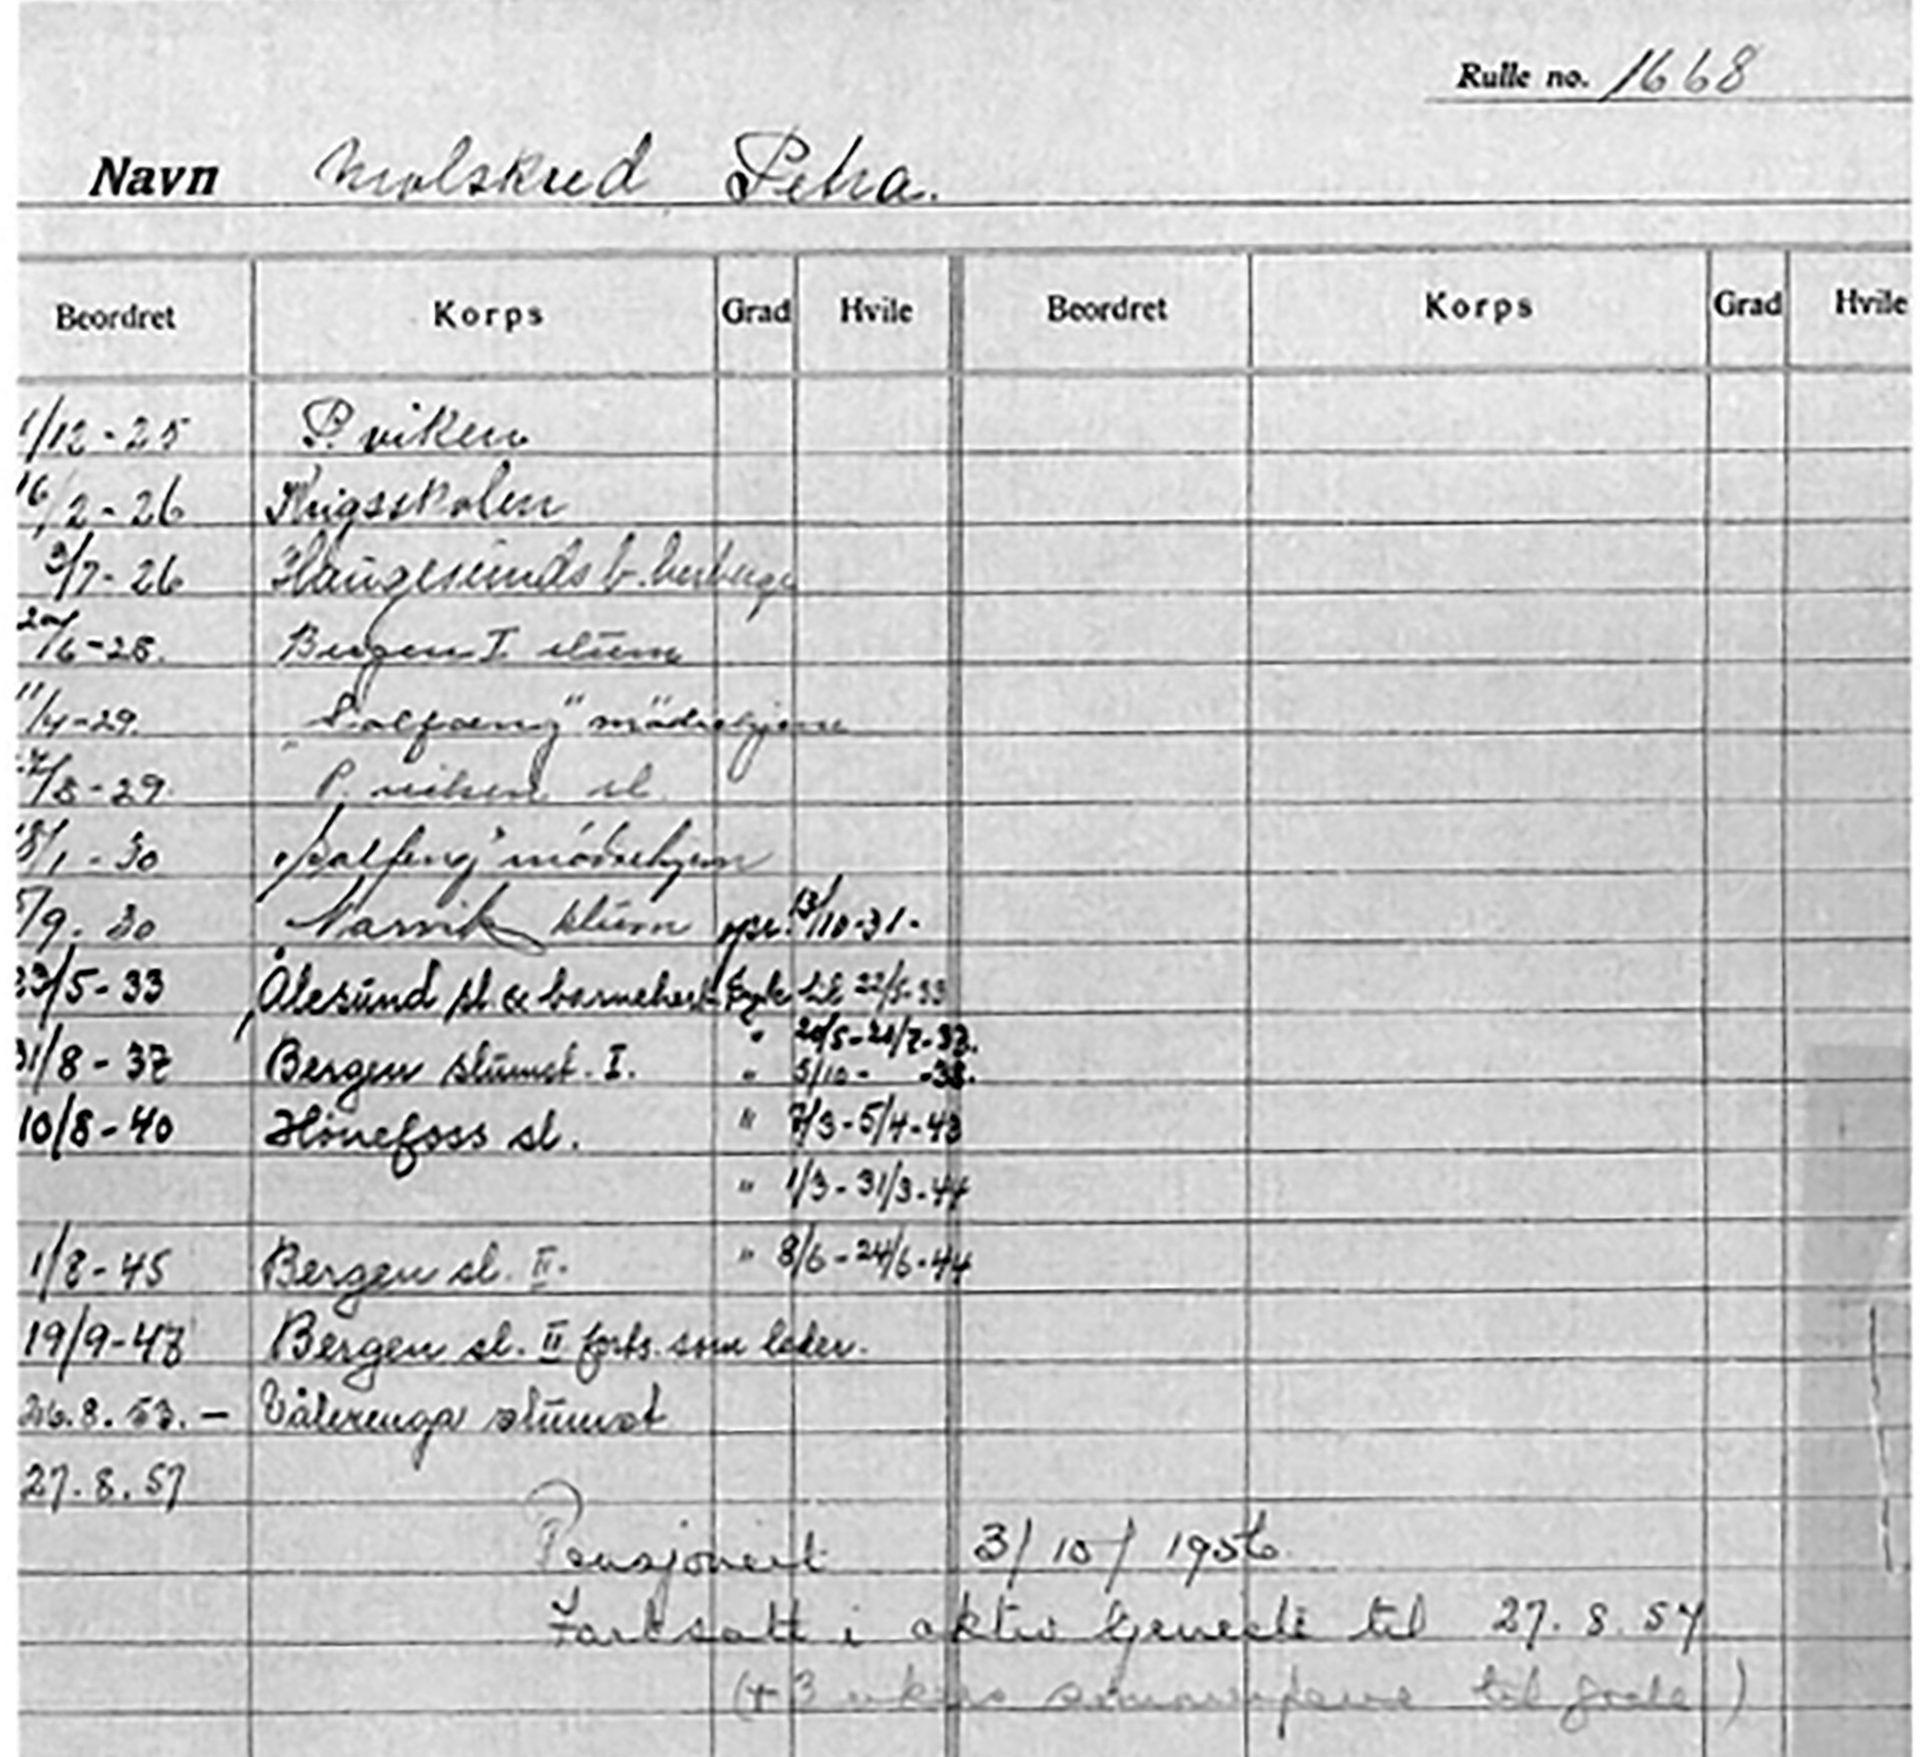 Rulle no. 1668
Navn Molskred Petra.
Beordret Korps Grad Hvile Beordret Korps Grad Hvile
1/12-25 P. viken
16/2-26 Krigsskolen
3/7-26 Haugesunds b. herberge
/6-28. Bergen I slum
11/4-29. "Solfeng" mödrehjem
/8-29. P. viken sl.
18/1-30 "Solfeng" mödrehjem
/9-30 Narvik slum 13/10-31-
23/5-33 Ålesund sl. & barneherb. Syk til 22/5-33
" 20/5-20/7-37.
31/8-37 Bergen slumst. I. " 5/10- -38.
10/8-40 Hönefoss sl. " 7/3-5/4-43
" 1/3-31/3-44
1/8-45 Bergen sl. II. " 8/6-24/6-44
19/9-47 Bergen sl. II forts. som leder.
26.8.53.- Vålerenga slumst
27.8.57
Pensjonert 3/10/1956
Fortsatt i aktiv tjeneste til 27.8.57
(+ 3 ukers til gode)